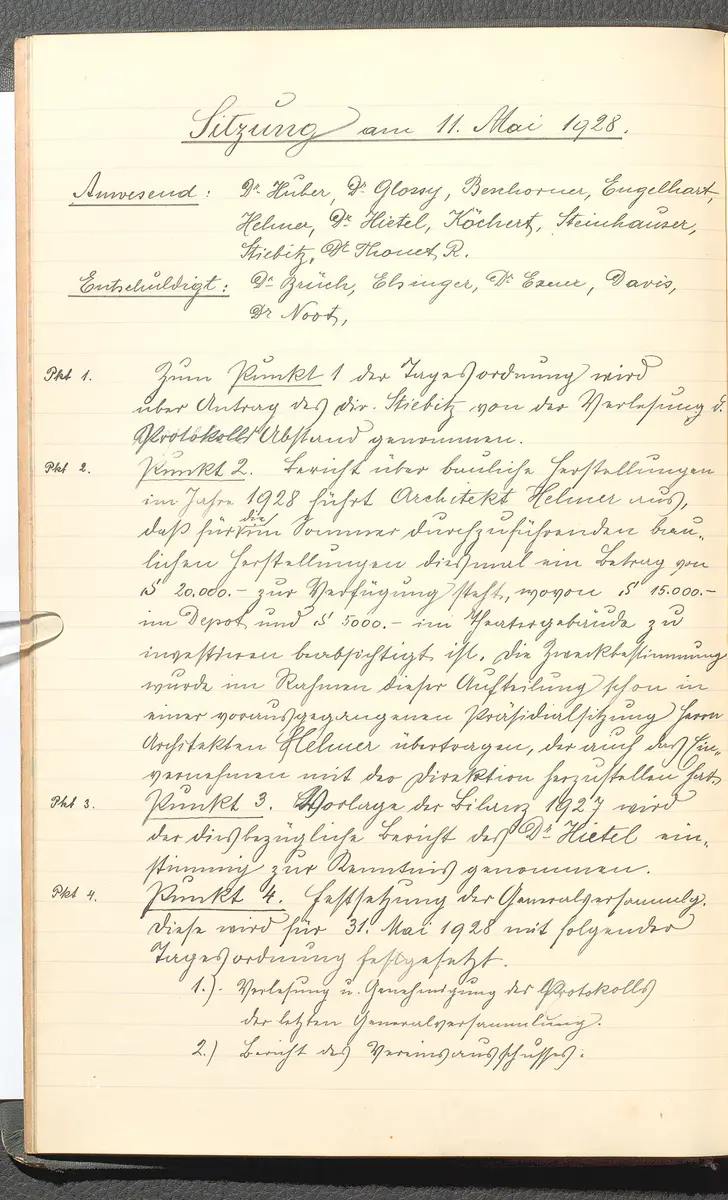 Sitzung am 11. Mai 1928.
Anwesend: Dr. Huber, Dr. Glossy, Beschorner, Engelhart,
Helmer, Dr. Hietel, Köchert, Steinhauser,
Stiebitz, Dr. Thonet R.
Entschuldigt: Dr. Brüch, Elsinger, Dr. Exner, Davis,
Dr. Noot,
Pkt 1. Zum Punkt 1 der Tagesordnung wird
über Antrag des Dir. Stiebitz von der Verlesung d.
Protokolls Abstand genommen.
Pkt 2. Punkt 2. Bericht über bauliche Herstellungen
im Jahre 1928 führt Architekt Helmer aus,
daß für die im Sommer durchzuführenden bau-
lichen Herstellungen diesmal ein Betrag von
S 20.000.- zur Verfügung steht, wovon S 15.000.-
im Depot und S 5000.- im Theatergebäude zu
investieren beabsichtigt ist. Die Zweckbestimmung
wurde im Rahmen dieser Aufteilung schon in
einer vorausgegangenen Präsidialsitzung Herrn
Architekten Helmer übertragen, der auch das Ein-
vernehmen mit der Direktion herzustellen hat.
Pkt 3. Punkt 3. Vorlage der Bilanz 1927 wird
der diesbezügliche Bericht des Dr. Hietel ein-
stimmig zur Kenntnis genommen.
Pkt 4. Punkt 4. Festsetzung der Generalversammlg.
Diese wird für 31. Mai 1928 mit folgender
Tagesordnung festgesetzt.
1.). Verlesung u. Genehmigung des Protokolls
der letzten Generalversammlung.
2.) Bericht des Vereinsausschusses: